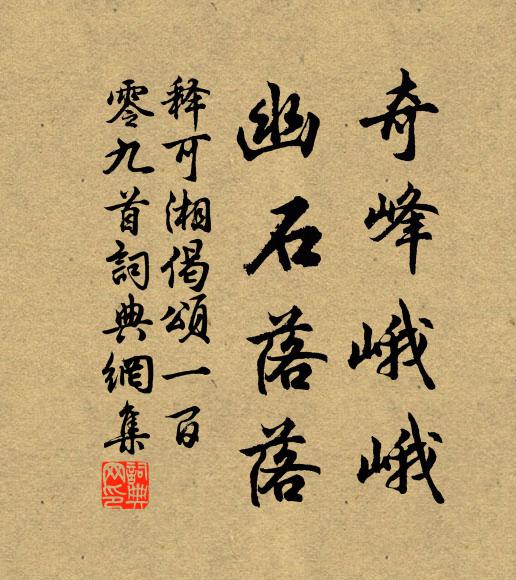 奇峰峨峨
幽石落落
释可湘偈頌一百
零九首詞典網集
詞典網印